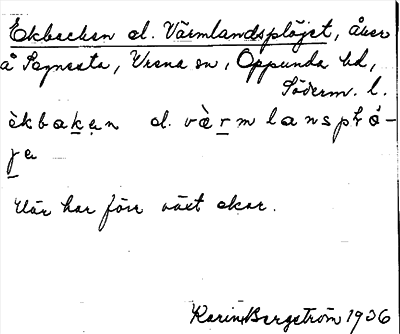 Ekbacken el. Värmlandsplöjet, åker
å Sagnesta, Vrena sn, Oppunda hd,
Söderm. l.
èkbakan el. vàrm lansplǿ-
je
Här har förr växt ekar.
Karin Bergström 1936